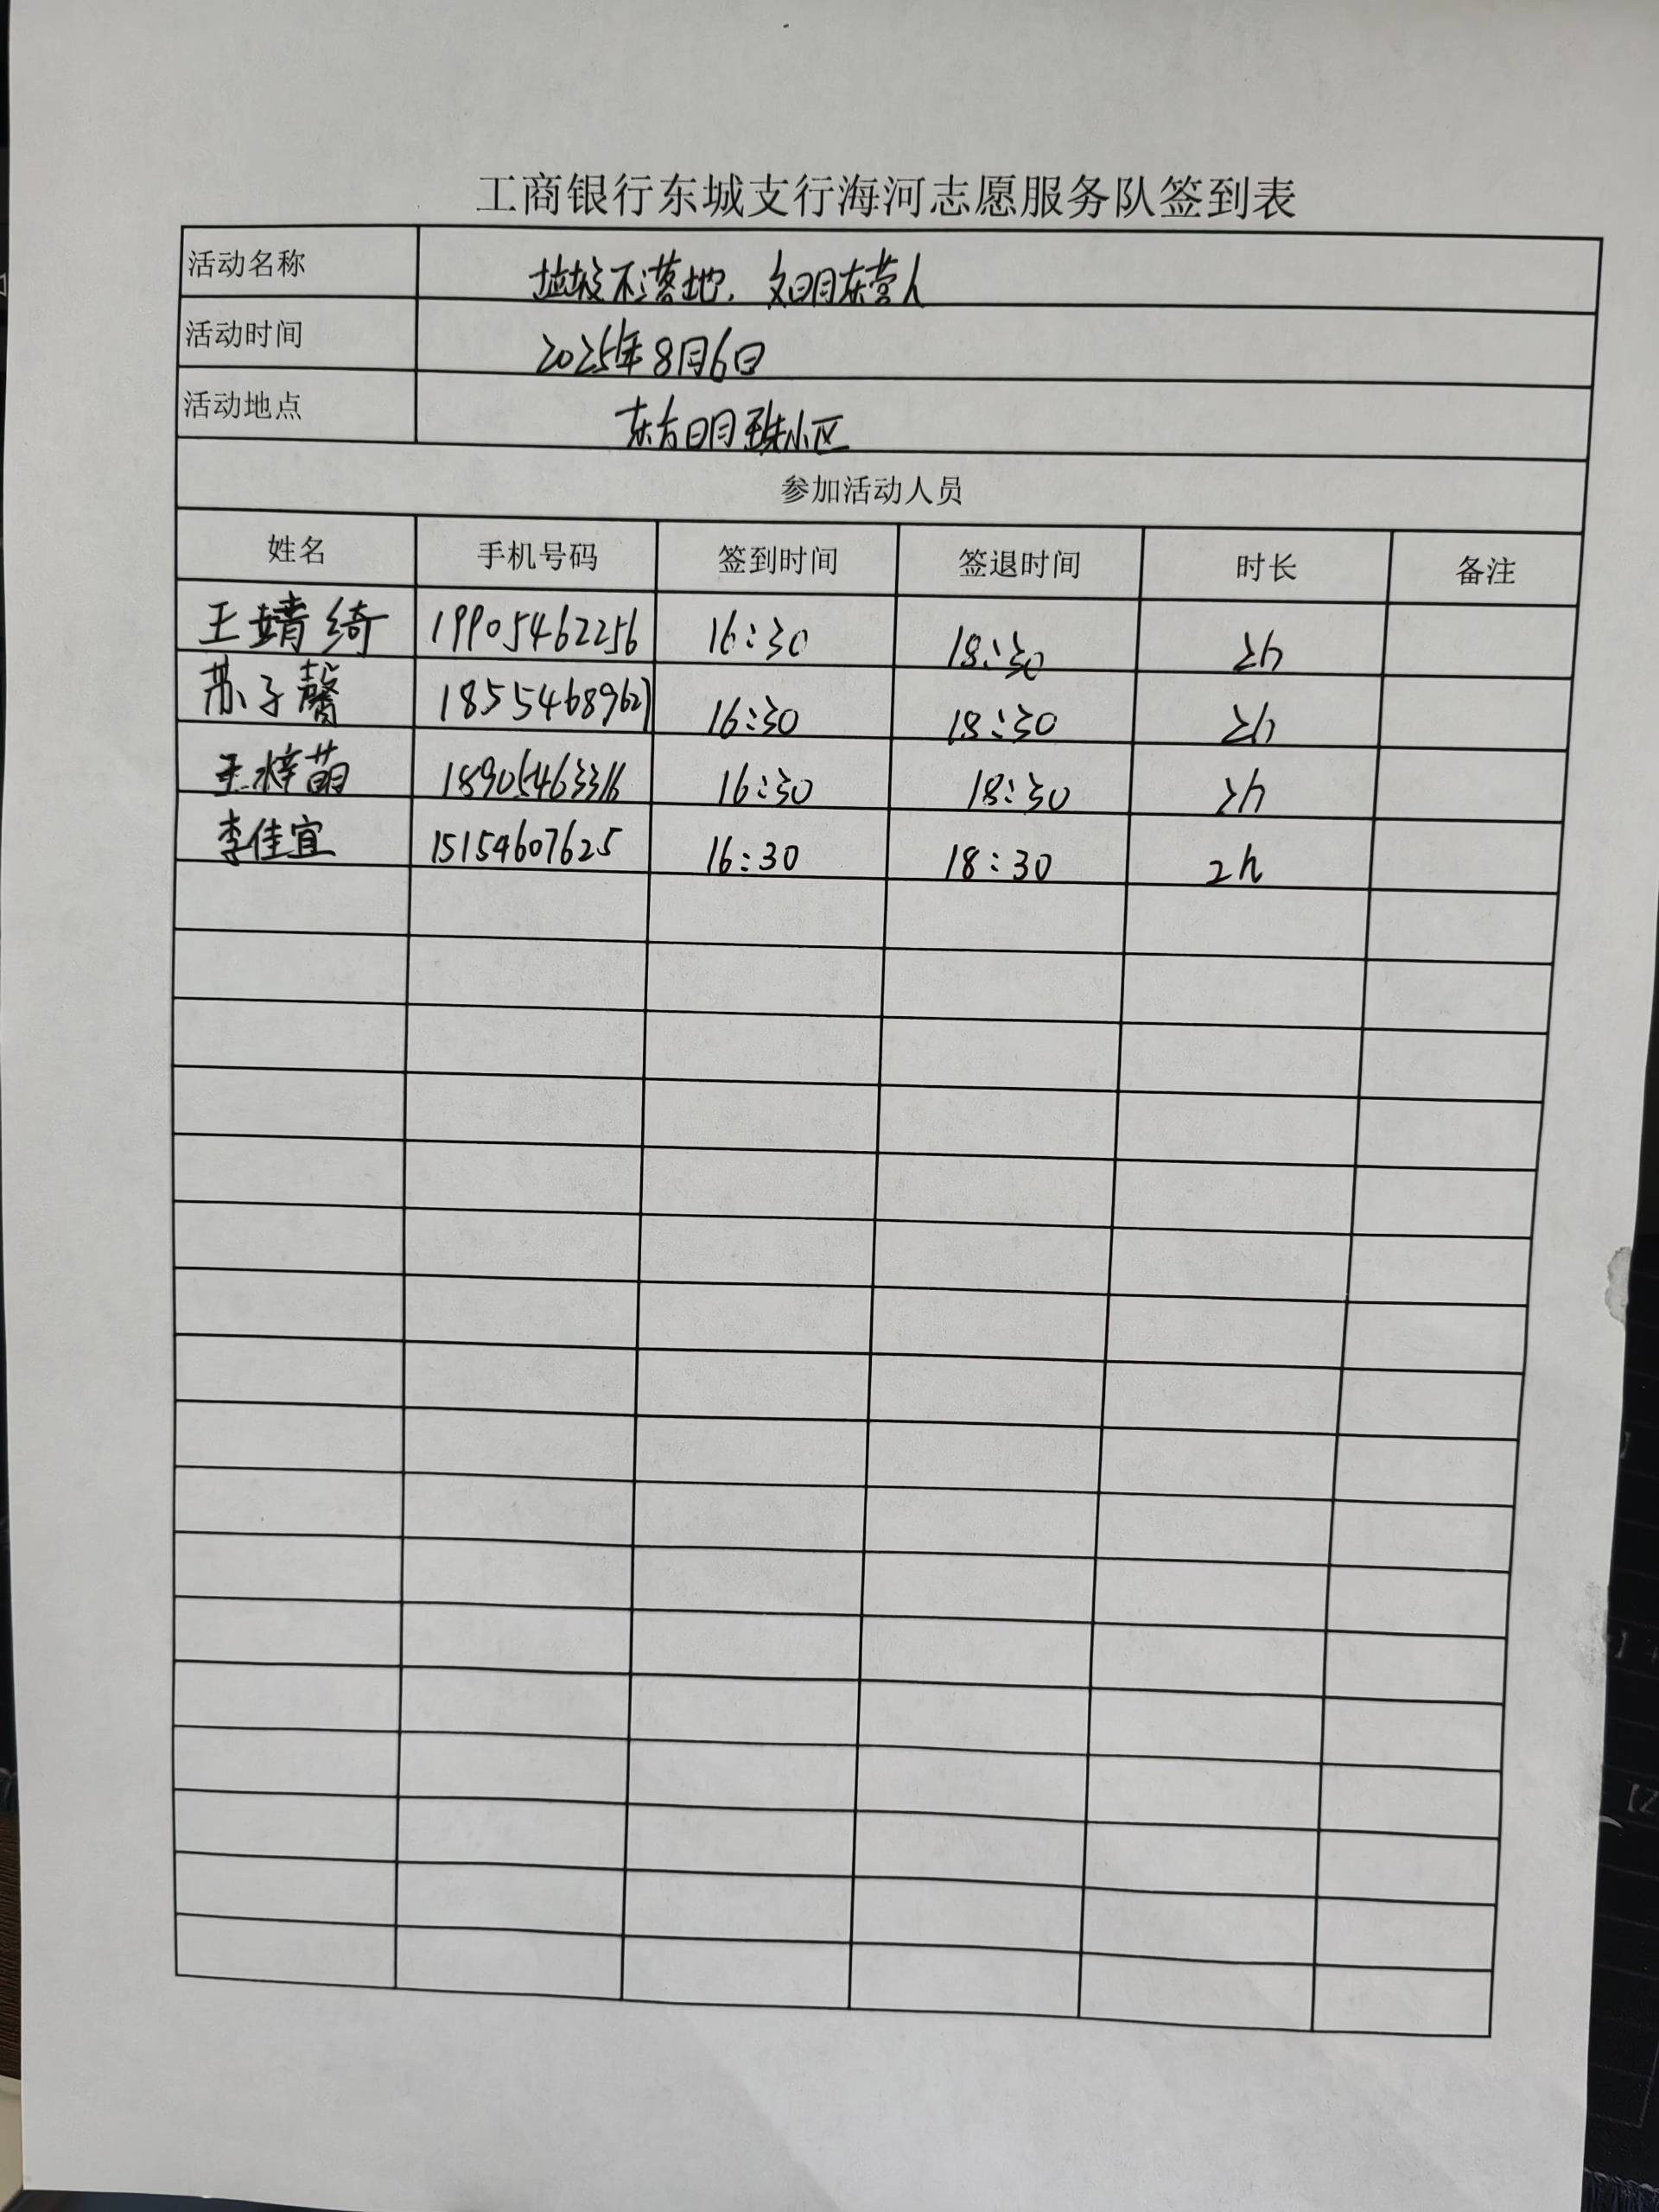 工商银行东城支行海河志愿服务队签到表
活动名称 垃圾不落地，文明东营人
活动时间 2025年8月6日
活动地点 东方明珠小区
参加活动人员
姓名 手机号码 签到时间 签退时间 时长 备注
王婧绮 19905462256 16:30 18:30 2h
苏子馨 18554689627 16:30 18:30 2h
王梓萌 18905463316 16:30 18:30 2h
李佳宜 15154607625 16:30 18:30 2h